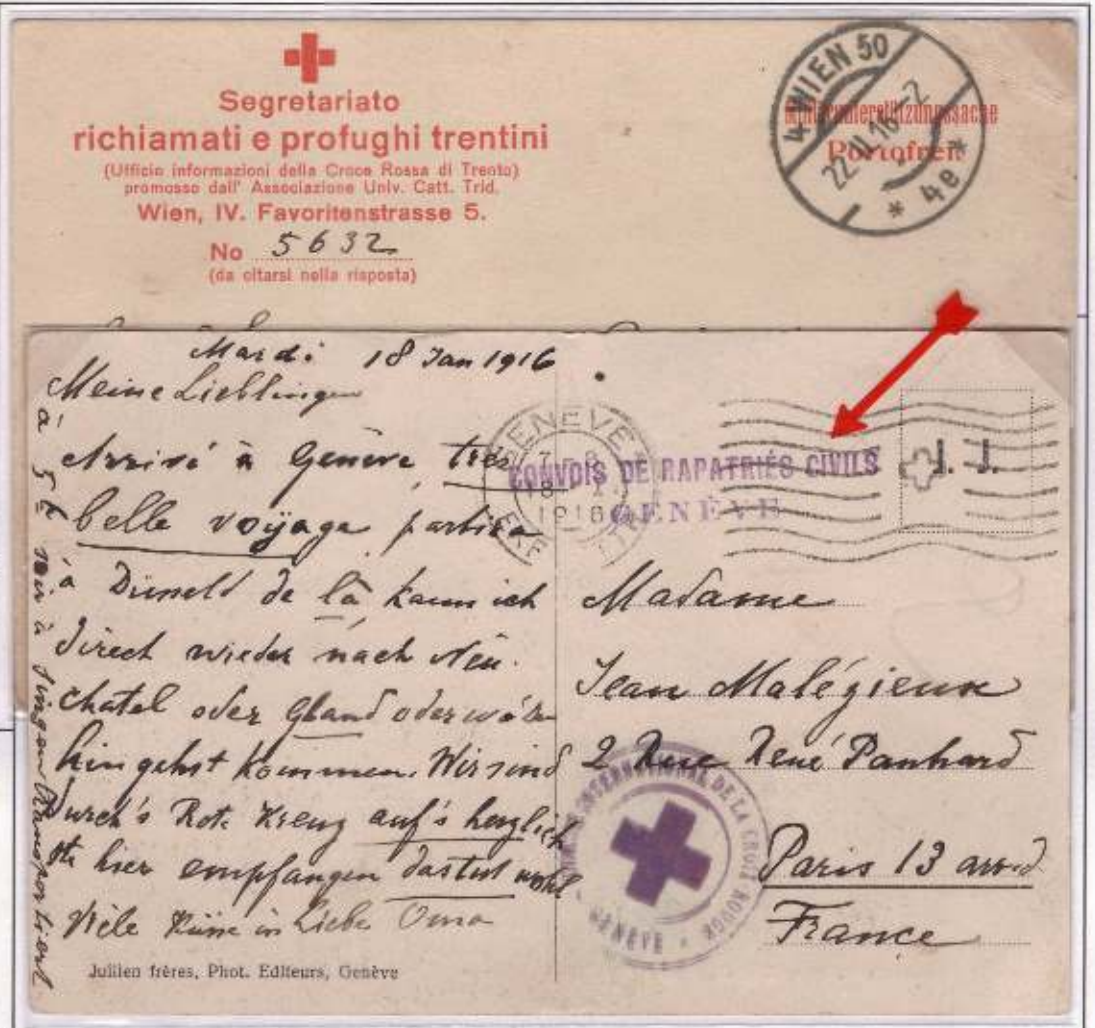 Segretariato
richiamati e profughi trentini
(Ufficio informazioni della Croce Rossa di Trento)
promosso dall' Associazione Univ. Catt. Trid.
Wien, IV. Favoritenstrasse 5.
No 5632
(da citarsi nella risposta)
4 WIEN 50
22.II.16-2
* 4e *
Portofrei.
Mardi 18 Jan 1916
Meine Lieblinge
Arrivé à Genève, très
belle voyage partira
à de là kann ich
direct wieder nach Neu-
chatel oder Gland oder
hin gehst kommen. Wir sind
durch's Rote Kreuz auf's herzlich
ste hier empfangen das tut wohl
Viele Küsse in Liebe Oma
à 5 h
Jullien frères, Phot. Editeurs, Genève
GENÈVE
1916
CONVOIS DE RAPATRIÉS CIVILS
GENÈVE
J. J.
Madame
Jean Malégieux
2 Rue René Panhard
Paris 13 arrd
France
COMITÉ INTERNATIONAL DE LA CROIX ROUGE
GENÈVE